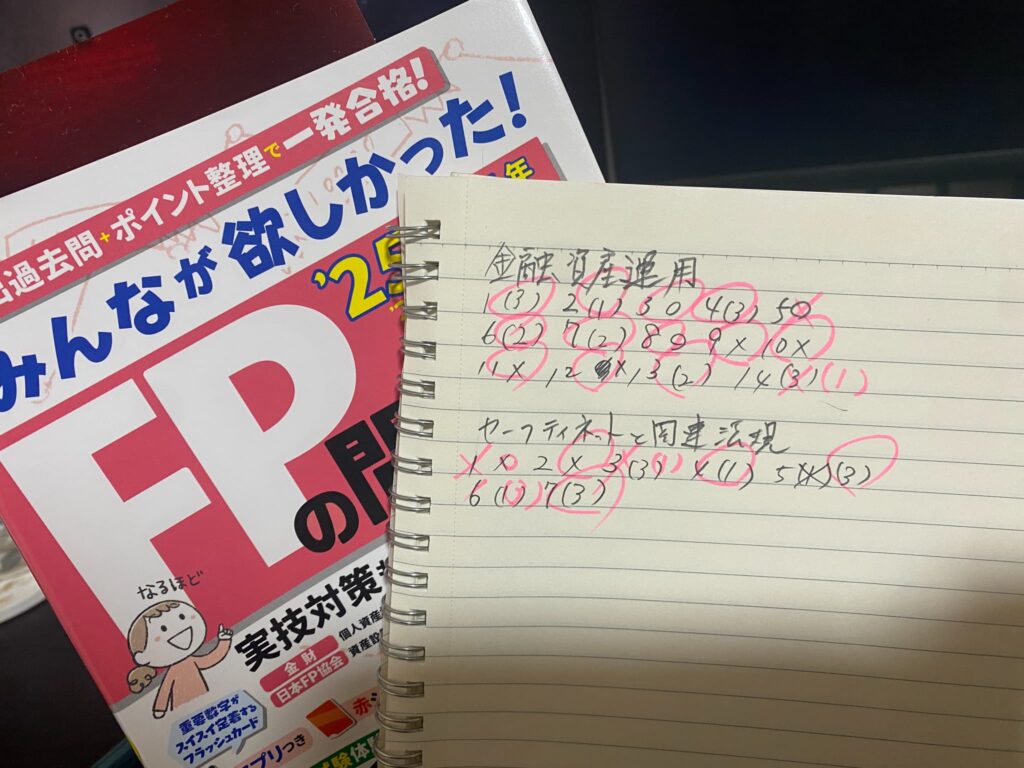 出過去問+ポイント整理で一発合格!
みんなが欲しかった!
年
'25
FP
の問
なるほど
実技対策も
金財 個人資産
日本FP協会 資産設
重要数字が
スイスイ定着する
フラッシュカード
アプリつき
赤シ
試験体験
金融資産運用
1 (3) 2 (1) 3 ○ 4 (3) 5 ○
6 (2) 7 (2) 8 ○ 9 × 10 ×
11 × 12 × 13 (2) 14 (3) (1)
セーフティネットと関連法規
1 × ○ 2 × 3 (3) (1) (1) 5 (3)
6 (1) 7 (3)